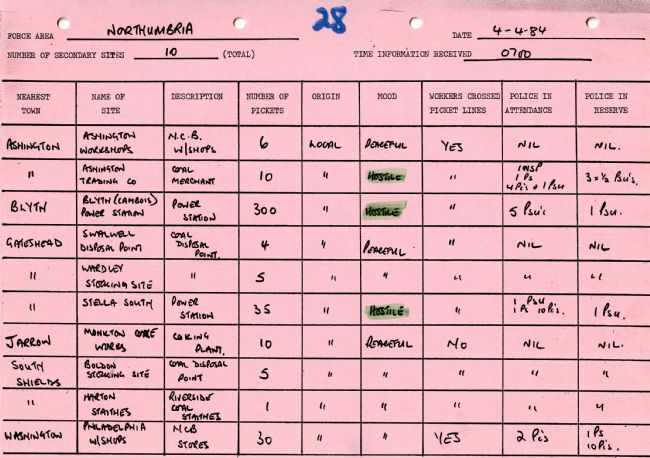 28
FORCE AREA NORTHUMBRIA DATE 4-4-84
NUMBER OF SECONDARY SITES 10 (TOTAL) TIME INFORMATION RECEIVED 0700
NEAREST TOWN NAME OF SITE DESCRIPTION NUMBER OF PICKETS ORIGIN MOOD WORKERS CROSSED PICKET LINES POLICE IN ATTENDANCE POLICE IN RESERVE
ASHINGTON ASHINGTON WORKSHOPS N.C.B. W/SHOPS 6 LOCAL PEACEFUL YES NIL NIL.
" ASHINGTON TRADING CO COAL MERCHANT 10 " HOSTILE " 1 INSP 1 Ps 4 Pc's + 1 PSU 3 x ½ PSU's.
BLYTH BLYTH (CAMBOIS) POWER STATION POWER STATION 300 " HOSTILE " 5 PSU's 1 PSU.
GATESHEAD SWALWELL DISPOSAL POINT COAL DISPOSAL POINT. 4 " PEACEFUL " NIL NIL.
" WARDLEY STOCKING SITE " 5 " " " " "
" STELLA SOUTH POWER STATION 35 " HOSTILE " 1 PSU 1 Ps 10 Pc's. 1 PSU.
JARROW MONKTON COKE WORKS COKING PLANT. 10 " PEACEFUL NO NIL NIL.
SOUTH SHIELDS BOLDON STOCKING SITE COAL DISPOSAL POINT 5 " " " " "
" HARTON STAITHES RIVERSIDE COAL STAITHES 1 " " " " "
WASHINGTON PHILADELPHIA W/SHOPS NCB STORES 30 " " YES 2 Pc's 1 Ps. 10 Pc's.